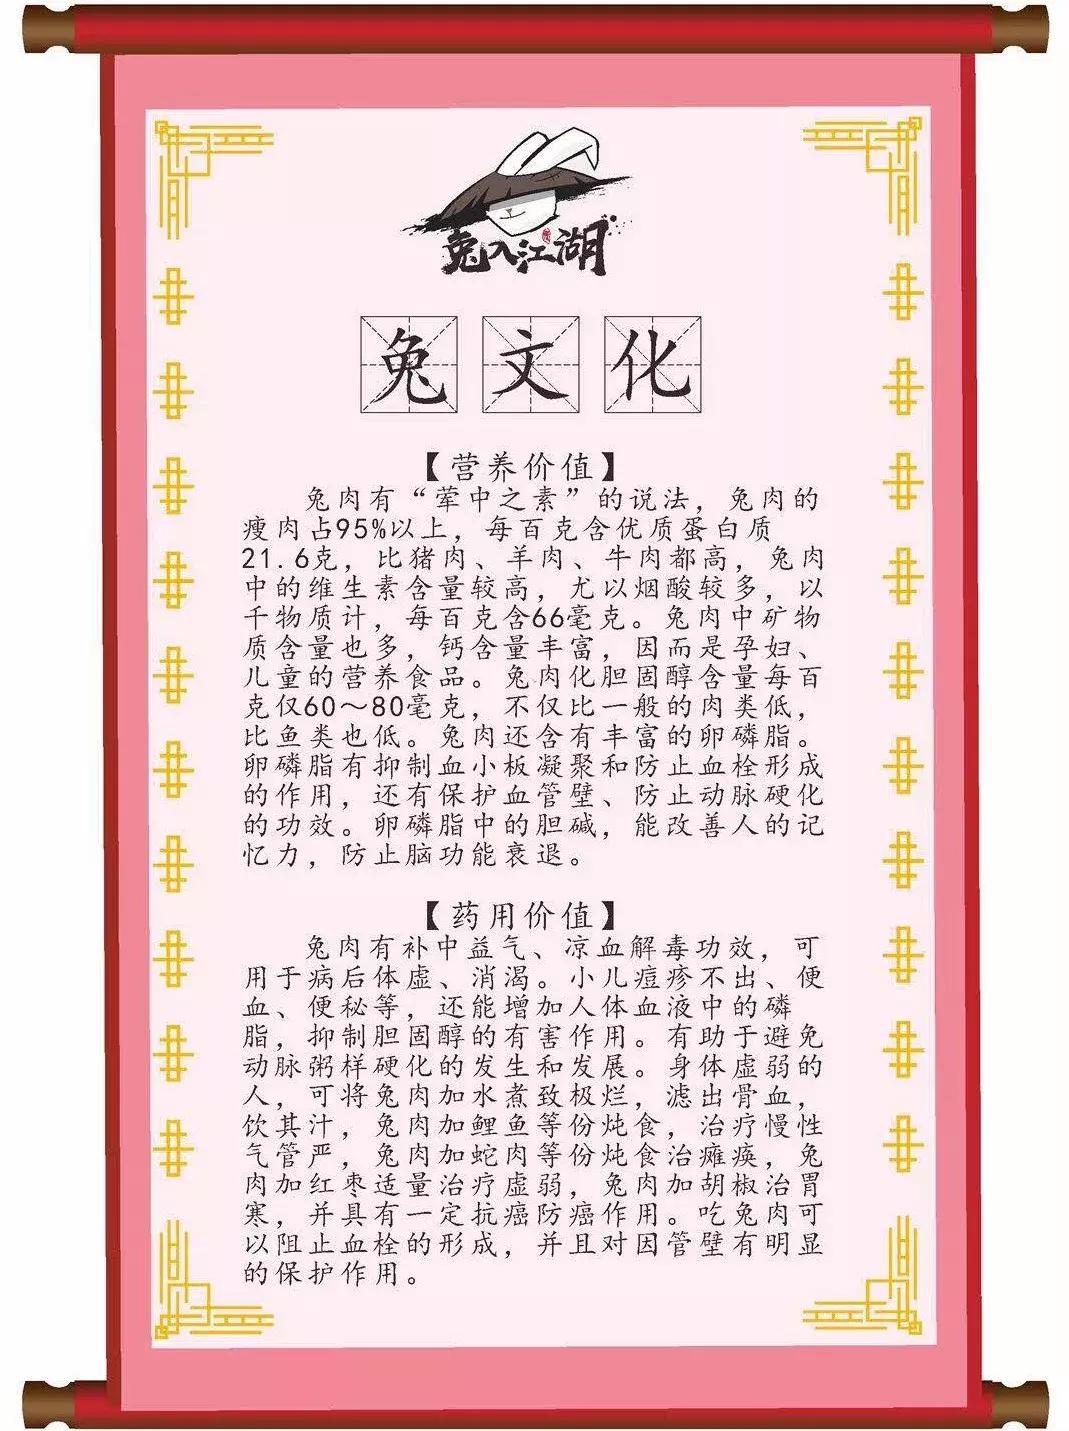 兔入江湖
兔文化
【营养价值】
兔肉有“荤中之素”的说法，兔肉的
瘦肉占95%以上，每百克含优质蛋白质
21.6克，比猪肉、羊肉、牛肉都高，兔肉
中的维生素含量较高，尤以烟酸较多，以
千物质计，每百克含66毫克。兔肉中矿物
质含量也多，钙含量丰富，因而是孕妇、
儿童的营养食品。兔肉化胆固醇含量每百
克仅60～80毫克，不仅比一般的肉类低，
比鱼类也低。兔肉还含有丰富的卵磷脂。
卵磷脂有抑制血小板凝聚和防止血栓形成
的作用，还有保护血管壁、防止动脉硬化
的功效。卵磷脂中的胆碱，能改善人的记
忆力，防止脑功能衰退。
【药用价值】
兔肉有补中益气、凉血解毒功效，可
用于病后体虚、消渴。小儿痘疹不出、便
血、便秘等，还能增加人体血液中的磷
脂，抑制胆固醇的有害作用。有助于避免
动脉粥样硬化的发生和发展。身体虚弱的
人，可将兔肉加水煮致极烂，滤出骨血，
饮其汁，兔肉加鲤鱼等份炖食，治疗慢性
气管严，兔肉加蛇肉等份炖食治瘫痪，兔
肉加红枣适量治疗虚弱，兔肉加胡椒治胃
寒，并具有一定抗癌防癌作用。吃兔肉可
以阻止血栓的形成，并且对因管壁有明显
的保护作用。